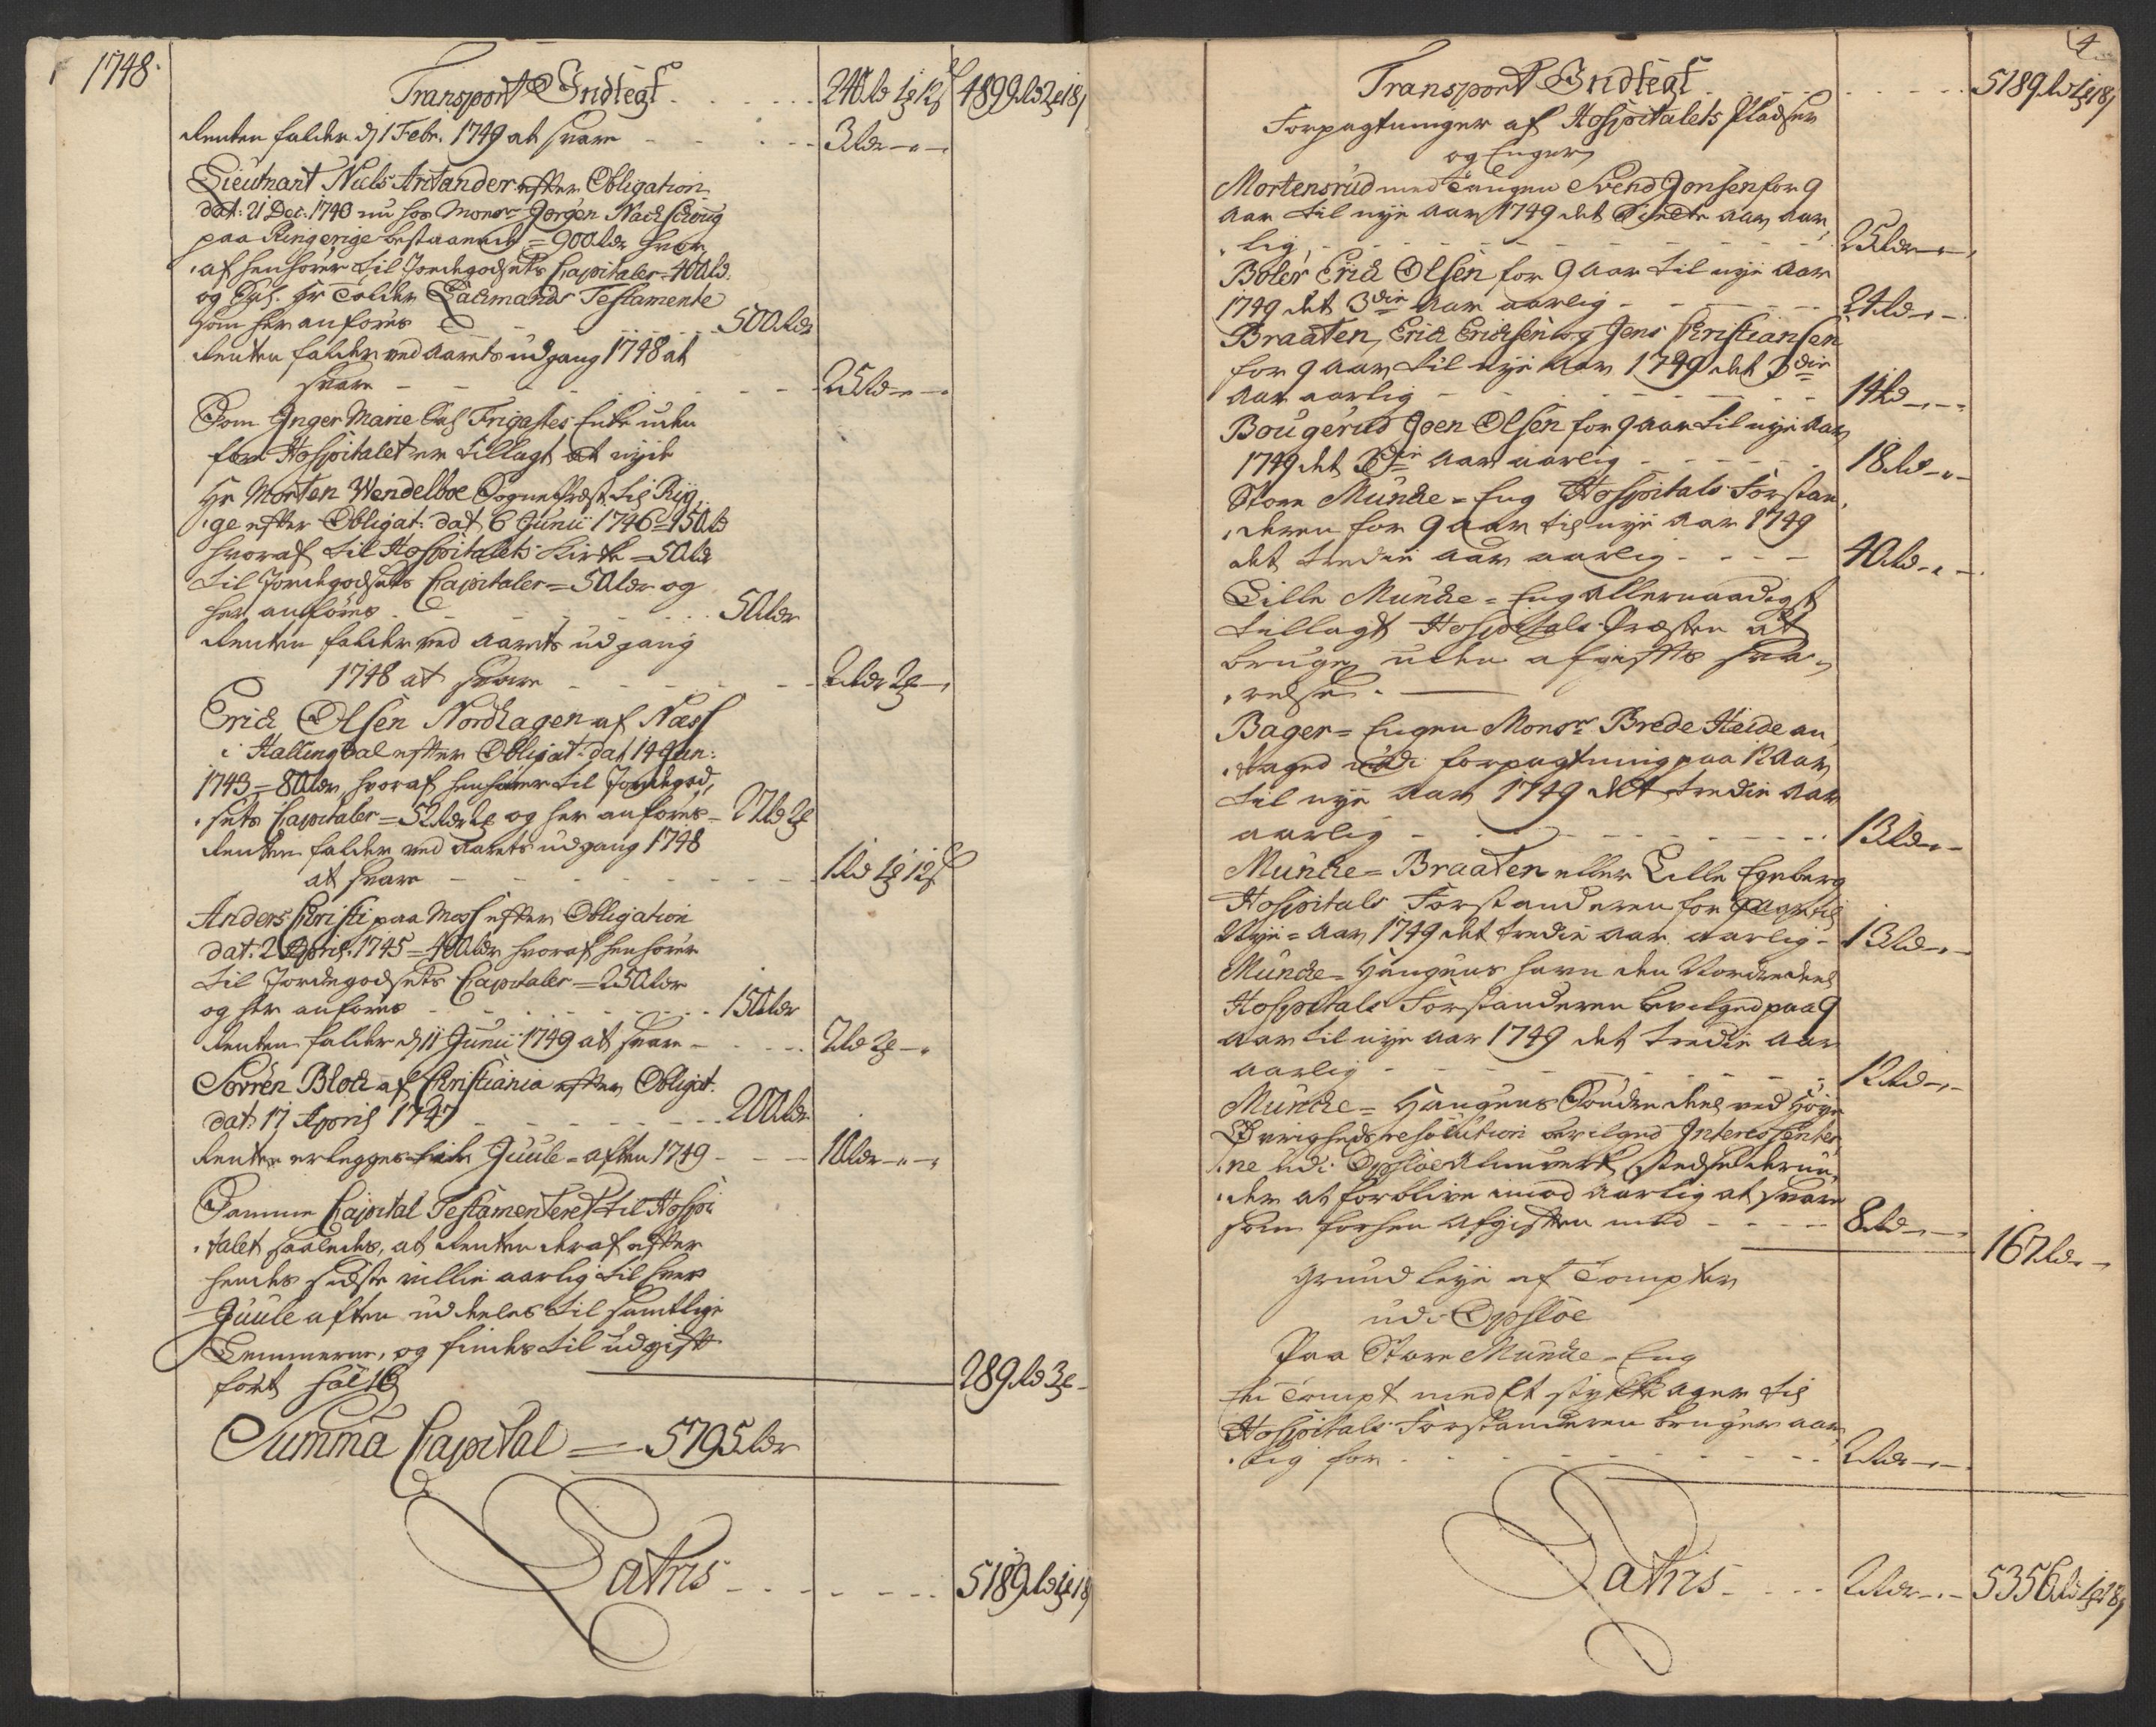 1748.
Transport Indtegt . . . . . . 240 rd 1 ₰ 12 s 4899 rd 2 ₰ 18 s
Renten falder d 1 Febr. 1749 at svare - - - 3 rdr - " -
Lieutnant Niels Antander efter Obligation
dat: 21 Dec: 1740 nu hos Monsr Jørgen Nachschoug
paa Ringerige bestaaende = 900 rdr hvor
af henhører til Jordegodsets Capitaler = 400 rd.
og Sal. Hr Tolder Lachmands Testamente
som her anføres - - - - 500 rdr
Renten falder ved Aarets udgang 1748 at
svare - - - - - - 25 rd - " -
Som Inger Marie Sal Frigastes Enke uden
for Hospitalet er tillagt at nyde
Hr Morten Wendelboe Sogne Præst til Ryg,
ge efter Obligat: dat 6 Junii 1746 = 150 rd
hvoraf til Hospitalets Kirke = 50 rdr
til Jordegodsets Capitaler = 50 rdr og
her anføres - - - - 50 rdr
Renten falder ved Aarets udgang
1748 at svare - - - - 2 rdr 2 ₰ -
Erich Olsen Nordhagen af Næss
i Hallingdal efter Obligat: dat 14 Jan:
1743 = 80 rdr, hvoraf henhører til Jordegod,
sets Capitaler = 52 rdr 2 ₰ og her anføres - 27 rd 2 ₰
Renten falder ved Aarets udgang 1748
at svare - - - - - - 1 rd 1 ₰ 12 s
Anders Christi paa Moss efter Obligation
dat: 2 April 1745 = 400 rdr hvoraf henhører
til Jordegodsets Capitaler = 250 rdr
og her anføres - - - - 150 rdr
Renten falder d 11 Junii 1749 at svare - - - 7 rd 2 ₰ - "
Sørren Bloch af Christiania efter Obligat:
dat: 17 April 1747 - - - - 200 rdr
Renten erlegges hver Juule = aften 1749 - - - 10 rdr - " -
Samme Capital Testamenteret til Hospi
talet saaledes, at Renten deraf efter
hendes sidste villie aarlig til hver
Juule aften uddeeles til samtlige
Lemmerne, og findes til udgift
ført fol 16 289 rd 3 ₰ -
Summa Capital = 5795 rdr
Latus - - - - - - 5189 rd 1 ₰ 18 s
4
Transport Indtegt . . . . . 5189 rd 1 ₰ 18 s
Forpagtninger af Hospitalets Pladser
og Enger
Mortensrud med Tangen Svend Jonsen for 9
Aar til nye Aar 1749 det Aar Aar,
lig - - - - - - 25 rdr - " -
Boler Erich Olsen for 9 Aar til nye Aar
1749 det 3die Aar aarlig - - - - 24 rd - " -
Braaten, Erich Erichsen og Jens Christiansen
for 9 Aar til nye Aar 1749 det 3die
Aar aarlig - - - - - - 14 rd - " -
Bougerud Joen Olsen for 9 Aar til nye Aar
1749 det 3die Aar aarlig - - - - 18 rd - " -
Store Muncke = Eng Hospitals Forstan,
deren for 9 aar til nye Aar 1749
det tredie Aar aarlig - - - - 40 rd - " -
Lille Muncke = Eng Allernaadigst
tillagt Hospitals Præsten at
bruge uden afgifts sva,
relse. -
Bager = Engen Monsr Brede Heide an,
taged udi forpagtning paa 12 Aar
til nye Aar 1749 det tredie Aar
aarlig - - - - - - 13 rd - " -
Muncke = Braaten eller Lille Egeberg
Hospitals Forstanderen for 9 Aar til
Nye = Aar 1749 det tredie Aar aarlig - 13 rd - " -
Muncke = Haugens Havn den Nordre deel
Hospitals Forstanderen bevilged paa 9
Aar til nye Aar 1749 det tredie Aar
aarlig - - - - - - 12 rd - " -
Muncke = Haugens Søndre deel ved Høye
Øvrigheds resolution bevilged Interessenter
ne udi Opsloe Alunverk, stedse derun,
der at forblive imod Aarlig at svare
som forhen afgiften med - - - - 8 rd - " -
167 rdr -
Grundleye af Tompter
udi Opsloe
Paa Store Muncke = Eng
En Tompt med Et stykke ager til
Hospitals Forstanderen bruger aar,
lig for - - - - - - 2 rdr - " -
Latus - - - - 2 rdr - " - 5356 rd 1 ₰ 18 s